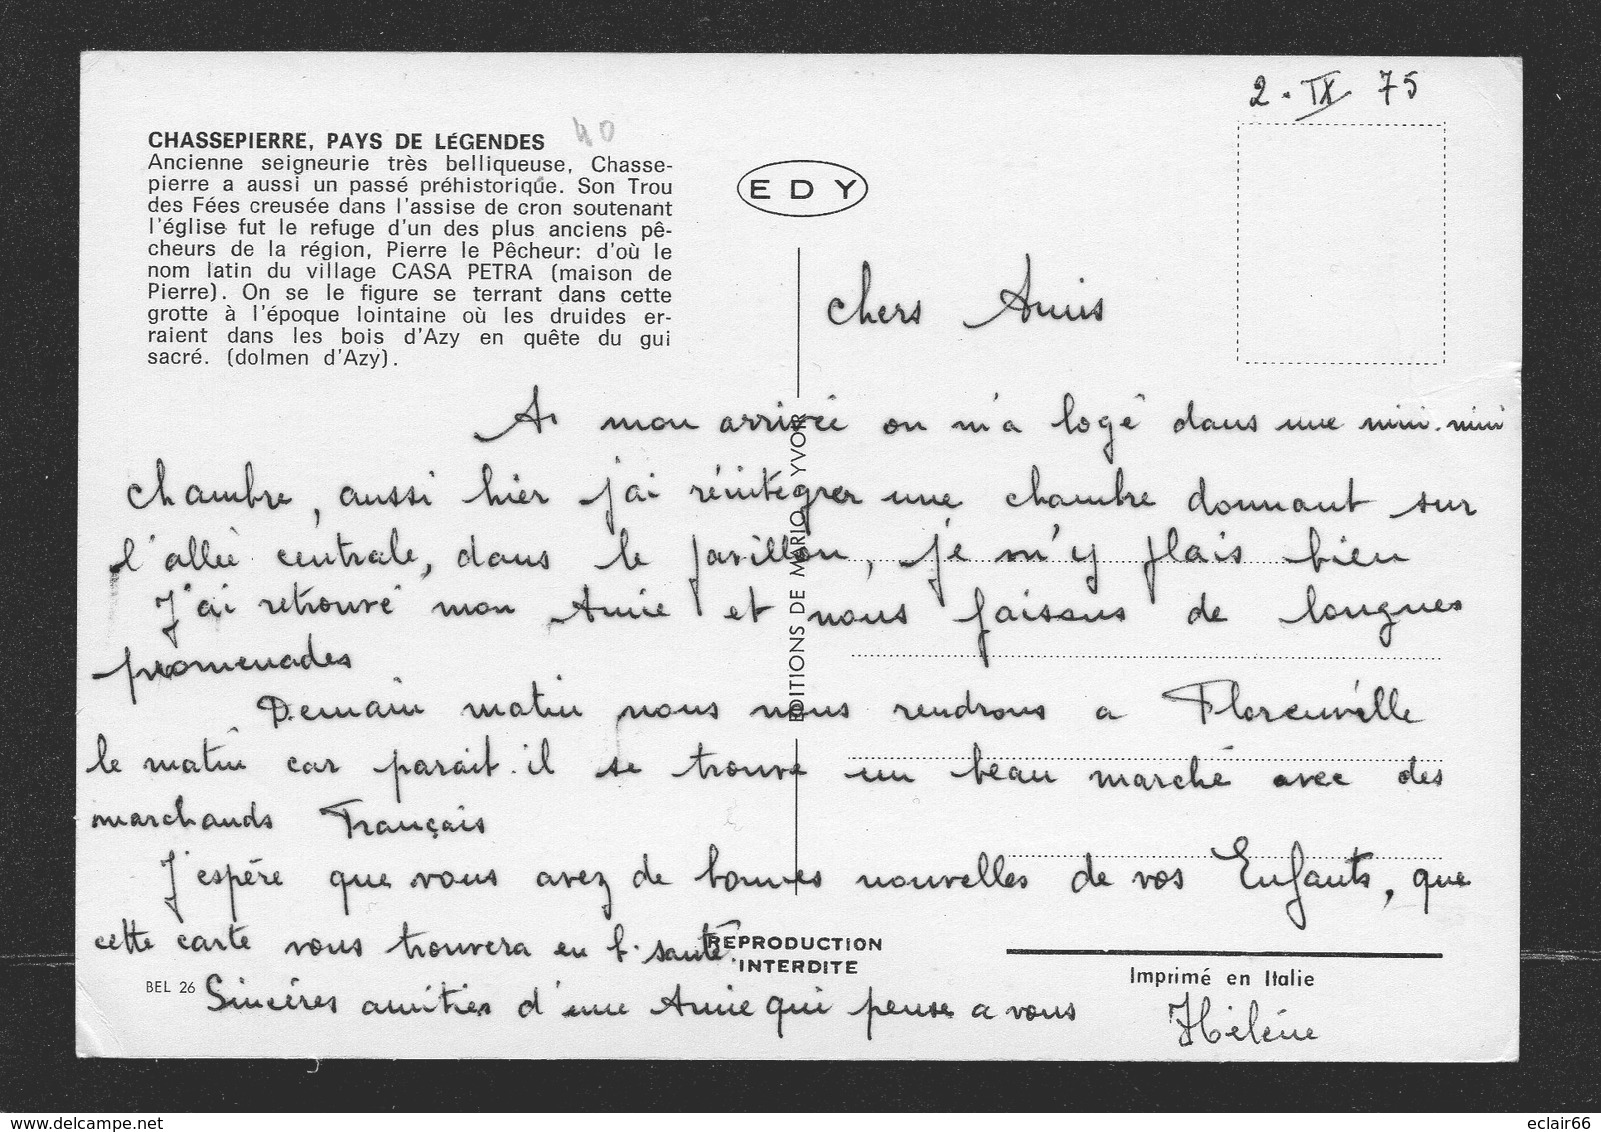 2. IX 75
40
CHASSEPIERRE, PAYS DE LÉGENDES
Ancienne seigneurie très belliqueuse, Chasse-
pierre a aussi un passé préhistorique. Son Trou
des Fées creusée dans l'assise de cron soutenant
l'église fut le refuge d'un des plus anciens pê-
cheurs de la région, Pierre le Pêcheur: d'où le
nom latin du village CASA PETRA (maison de
Pierre). On se le figure se terrant dans cette
grotte à l'époque lointaine où les druides er-
raient dans les bois d'Azy en quête du gui
sacré. (dolmen d'Azy).
EDY
EDITIONS DE MARIO YVOIR
Chers Amis
A mon arrivée on m'a logé dans une mini-mini
chambre, aussi hier j'ai réintégrer une chambre donnant sur
l'allée centrale, dans le pavillon, je m'y plais bien
J'ai retrouvé mon Amie et nous faisons de longues
promenades
Demain matin nous nous rendrons a Florenville
le matin car parait.il se trouve un beau marché avec des
marchands Français
J'espère que vous avez de bonnes nouvelles de vos Enfants, que
cette carte vous trouvera en b. santé.
REPRODUCTION
INTERDITE
Imprimé en Italie
BEL 26
Sincéres amitiés d'une Amie qui pense a vous
Hélène
delcampe.net
eclair66